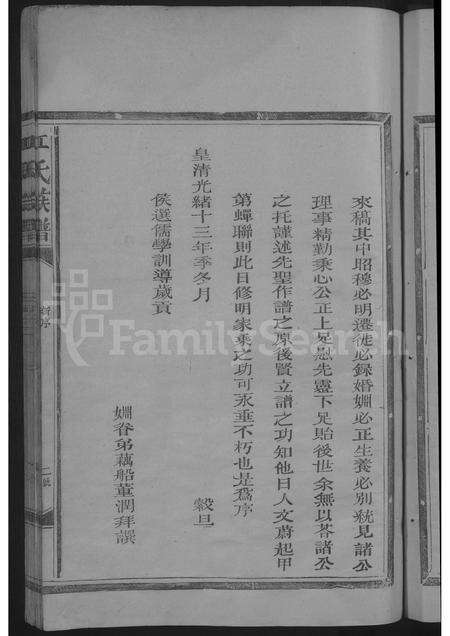 來稿其中昭穆必明遷徙必録婚姻必正生養必别統見諸公
理事精勤秉心公正上足慰先靈下足貽後世余無以荅諸公
之托謹述先聖作譜之原後賢立譜之功知他日人文蔚起甲
第蟬聯則此日修明家乘之功可永垂不朽也是爲序
皇清光緒十三年季冬月　　穀旦
侯選儒學訓導歲貢
姻眷弟藕船董潤拜譔
江氏族譜
序
FamilySearch